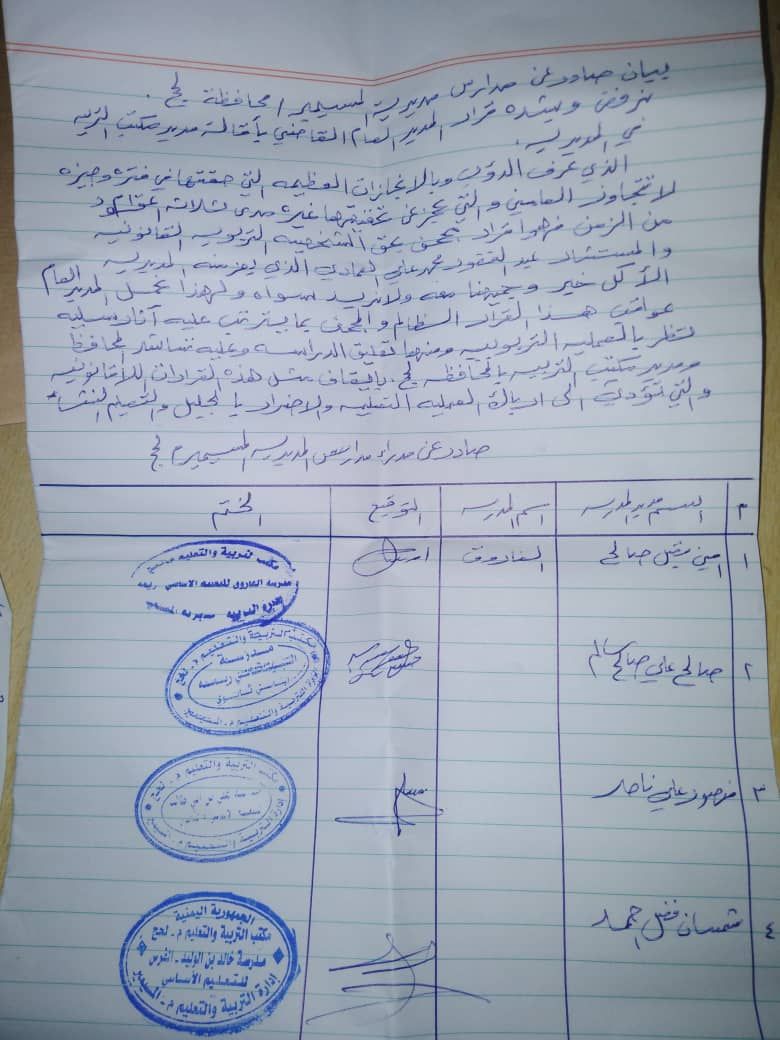 بيان صادر عن مدارس مديرية المسيمير / محافظة لحج .
نرفض وبشده قرار المدير العام القاضي بأقالة مدير مكتب التربيه
في المديريه .
الذي عرف الدؤب وبالإنجازات العظيمه التي حققتها في فتره وجيزه
لا تتجاوز العامين والتي عجز عن تحقيقها غيره مدى ثلاثه عقود
من الزمن فهوا قرار بحق الشخصيه التربويه القانونيه
والمستشار عبد محمد علي العمادي الذي يعرفه المديريه
الأكل خير و معه ولا نريد سواه ولهذا نحمل المدير العام
عواقب هذا القرار الظالم والمجحف بما يترتب عليه آثار سلبيه
تضر بالعمليه التربويه ومنها تعليق الدراسه وعليه نناشد المحافظ
ومدير مكتب التربيه بالمحافظه لحج بإيقاف مثل هذه القرارات اللاقانونيه
والتي تؤدي الى العمليه التعليميه والاضرار بالجيل والتعليم
صادر عن مدراء مدارس المديريه المسيمير م لحج
م السم مدير المدرسه اسم المدرسه التوقيع الختم
١ امين مقبل صالح الفاروق
مكتب التربية والتعليم
مدرسة الفاروق للتعليم الاساسي
٢ صالح علي صالح سالم
مكتب التربية والتعليم م. لحج
مدرسة
إدارة التربية والتعليم م. المسيمير
٣ علي ناصر
مكتب التربية والتعليم م. لحج
إدارة التربية والتعليم م. المسيمير
٤ شمسان فضل احمد
الجمهورية اليمنية
مكتب التربية والتعليم م. لحج
مدرسة خالد بن الوليد - الفرس
للتعليم الأساسي
إدارة التربية والتعليم م. المسيمير